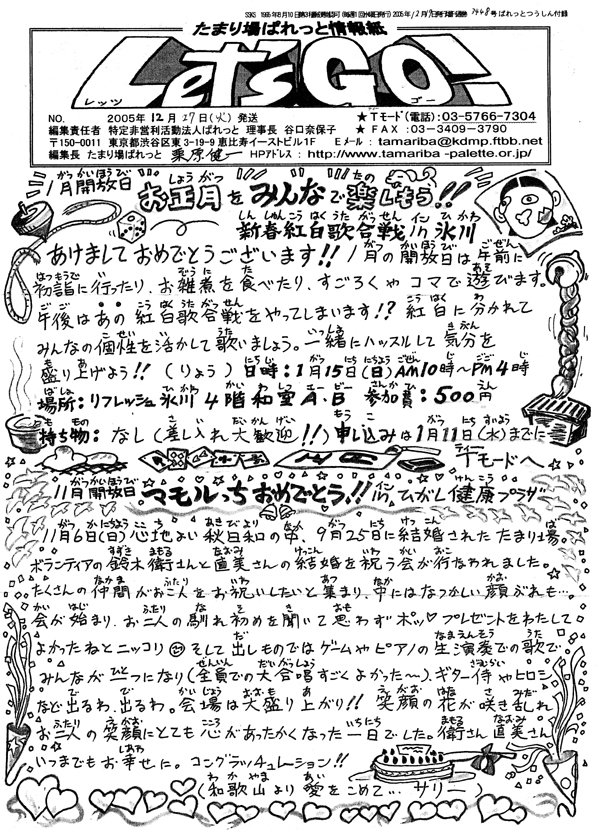 たまり場ぱれっと情報紙
Let's GO!
レッツ ゴー
NO. 2005年12月27日(火) 発送
★Tモード(電話):03-5766-7304
編集責任者 特定非営利活動法人ぱれっと 理事長 谷口奈保子
★FAX:03-3409-3790
〒150-0011 東京都渋谷区東3-19-9 恵比寿イーストビル1F Eメール:tamariba@kdmp.ftbb.net
編集長 たまり場ぱれっと 栗原健一 HPアドレス:http://www.tamariba-palette.or.jp/
1月開放日 お正月をみんなで楽しもう!!
新春紅白歌合戦 in 氷川
あけましておめでとうございます!! 1月の開放日は午前に
初詣に行ったり、お雑煮を食べたり、すごろくやコマで遊びます。
午後はあの紅白歌合戦をやってしまいます!? 紅白に分かれて
みんなの個性を活かして歌いましょう。一緒にハッスルして気分を
盛り上げよう!! (りょう) 日時:1月15日(日)AM10時〜PM4時
場所:リフレッシュ氷川4階和室A・B 参加費:500円
持ち物:なし(差し入れ大歓迎!!) 申し込みは1月11日(水)までに
Tモードへ
11月開放日 マモルっちおめでとう!! in ひがし健康プラザ
11月6日(日)心地よい秋日和の中、9月25日に結婚されたたまり場。
ボランティアの鈴木衛さんと直美さんの結婚を祝う会が行なわれました。
たくさんの仲間がお二人をお祝いしたいと集まり、中にはなつかしい顔ぶれも…
会が始まり、お二人の馴れ初めを聞いて思わずポッ♡プレゼントをわたして
よかったねとニッコリ☺そして出しものではゲームやピアノの生演奏での歌で
みんながひとつになり(全員での大合唱すごくよかった〜)、ギター侍やヒロシ
など出るわ、出るわ。会場は大盛り上がり!! 笑顔の花が咲き乱れ
お二人の笑顔にとても心があたたかくなった一日でした。衛さん直美さん
いつまでもお幸せに。コングラッチュレーション!!
(和歌山より愛をこめて… サリー)